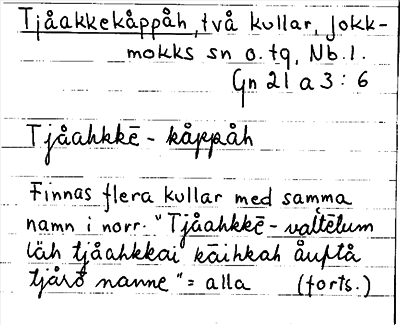 Tjåakkekåppåh, två kullar, Jokk-
mokks sn o. tg, Nb. l.
Gn 21 a 3 : 6
Tjåahkkē - kåppåh
Finnas flera kullar med samma
namn i norr. "Tjåahkkē - valtētum
läh tjåahkkai kaihkah åuftå
tjårō namne" = alla (forts.)